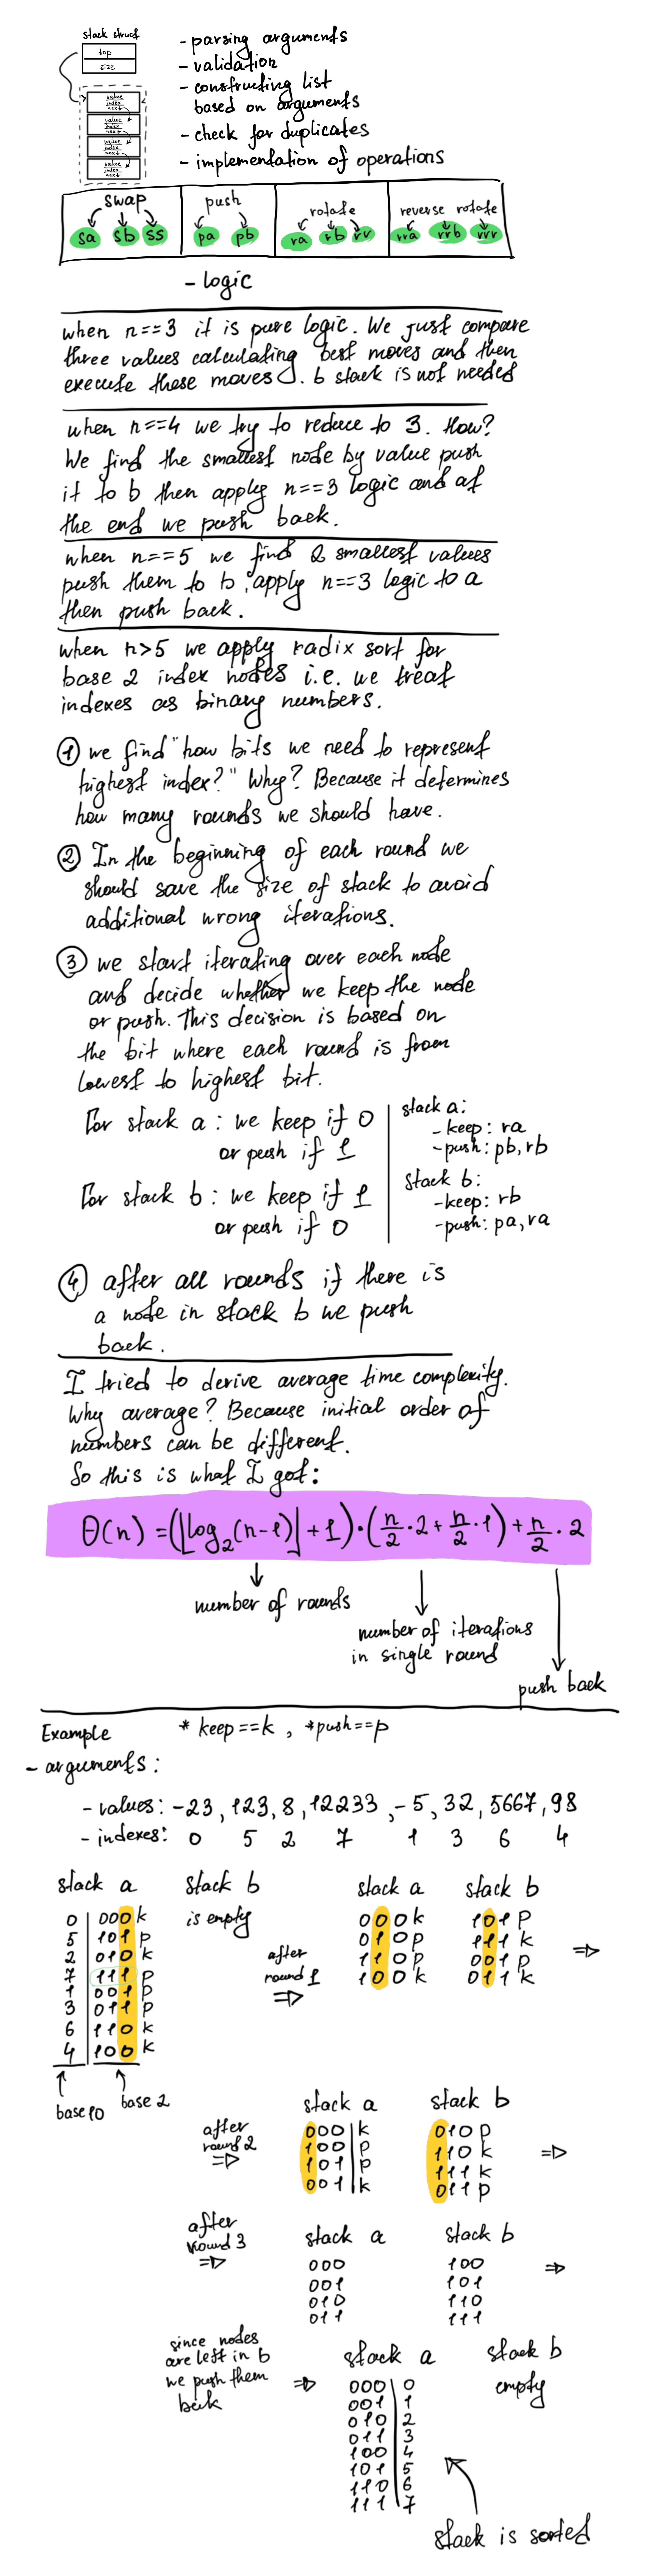 stack struct
top
size
value
index
next
value
index
next
value
index
next
value
index
next
- parsing arguments
- validation
- constructing list
based on arguments
- check for duplicates
- implementation of operations
swap
push
rotate
reverse rotate
sa sb ss
pa pb
ra rb rr
rra rrb rrr
- logic
when n==3 it is pure logic. We just compare
three values calculating best moves and then
execute these moves. b stack is not needed
when n==4 we try to reduce to 3. How?
We find the smallest node by value push
it to b then apply n==3 logic and at
the end we push back.
when n==5 we find 2 smallest values
push them to b, apply n==3 logic to a
then push back.
when n>5 we apply radix sort for
base 2 index nodes i.e. we treat
indexes as binary numbers.
1 we find "how bits we need to represent
highest index?" Why? Because it determines
how many rounds we should have.
2 In the beginning of each round we
should save the size of stack to avoid
additional wrong iterations.
3 we start iterating over each node
and decide whether we keep the node
or push. This decision is based on
the bit where each round is from
lowest to highest bit.
For stack a: we keep if 0
or push if 1
For stack b: we keep if 1
or push if 0
stack a:
- keep: ra
- push: pb, rb
stack b:
- keep: rb
- push: pa, ra
4 after all rounds if there is
a node in stack b we push
back.
I tried to derive average time complexity.
Why average? Because initial order of
numbers can be different.
So this is what I got:
Θ(n) = (⌊log₂(n-1)⌋+1)·(n/2·2+n/2·1)+n/2·2
number of rounds
number of iterations
in single round
push back
Example * keep==k, *push==p
- arguments:
- values: -23, 123, 8, 12233, -5, 32, 5667, 98
- indexes: 0 5 2 7 1 3 6 4
stack a
0 000 k
5 101 p
2 010 k
7 111 p
1 001 p
3 011 p
6 110 k
4 100 k
base 10
base 2
stack b
is empty
after
round 1
⇒
stack a
000 k
010 p
110 p
100 k
stack b
101 p
111 k
001 p
011 k
⇒
after
round 2
⇒
stack a
000 k
100 p
101 p
001 k
stack b
010 p
110 k
111 k
011 p
⇒
after
round 3
⇒
stack a
000
001
010
011
stack b
100
101
110
111
⇒
since nodes
are left in b
we push them
back
⇒
stack a
000 0
001 1
010 2
011 3
100 4
101 5
110 6
111 7
stack b
empty
stack is sorted